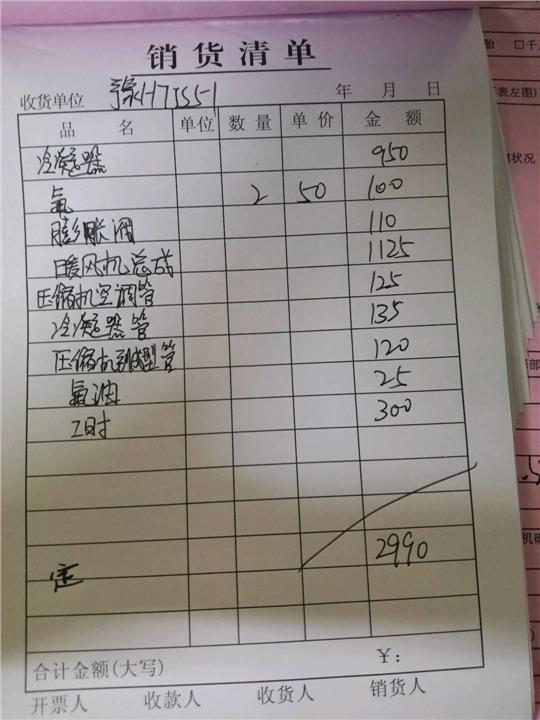 销货清单
收货单位
年 月 日
品 名 单位 数量 单价 金 额
冷凝器 950
氟 2 50 100
膨胀阀 110
暖风机总成 1125
压缩机空调管 125
冷凝器管 135
压缩机到 管 120
氟油 25
工时 300
2990
合计金额(大写) ¥:
开票人 收款人 收货人 销货人
胎 □千
表左图)
状况